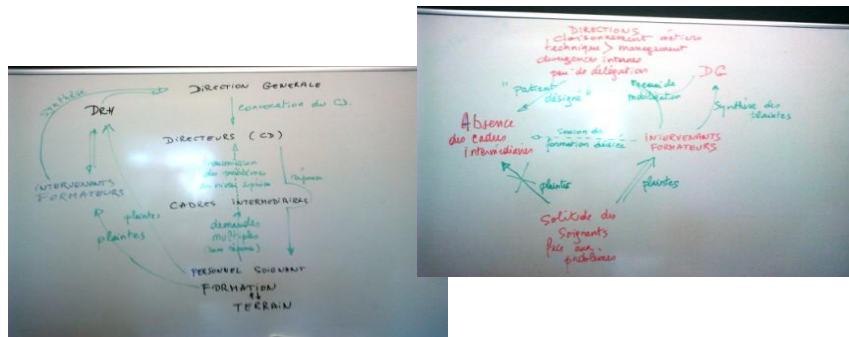 Synthèse
DIRECTION GENERALE
DRH
convocation du CD.
DIRECTEURS (CD)
transmission
des problèmes
au niveau supérieur
réponse
INTERVENANTS
FORMATEURS
CADRES INTERMEDIAIRES
plaintes
plaintes
demandes
multiples
(sans réponse)
PERSONNEL SOIGNANT
FORMATION
TERRAIN
DIRECTIONS
cloisonnement métiers
technique > management
divergences internes
peu de délégation
DG
"patient
désigné"
mobilisation
Synthèse des
plaintes
Absence
des cadres
intermédiaires
formation dédiée
INTERVENANTS
FORMATEURS
plaintes
plaintes
Solitude des
Soignants
face aux
problèmes